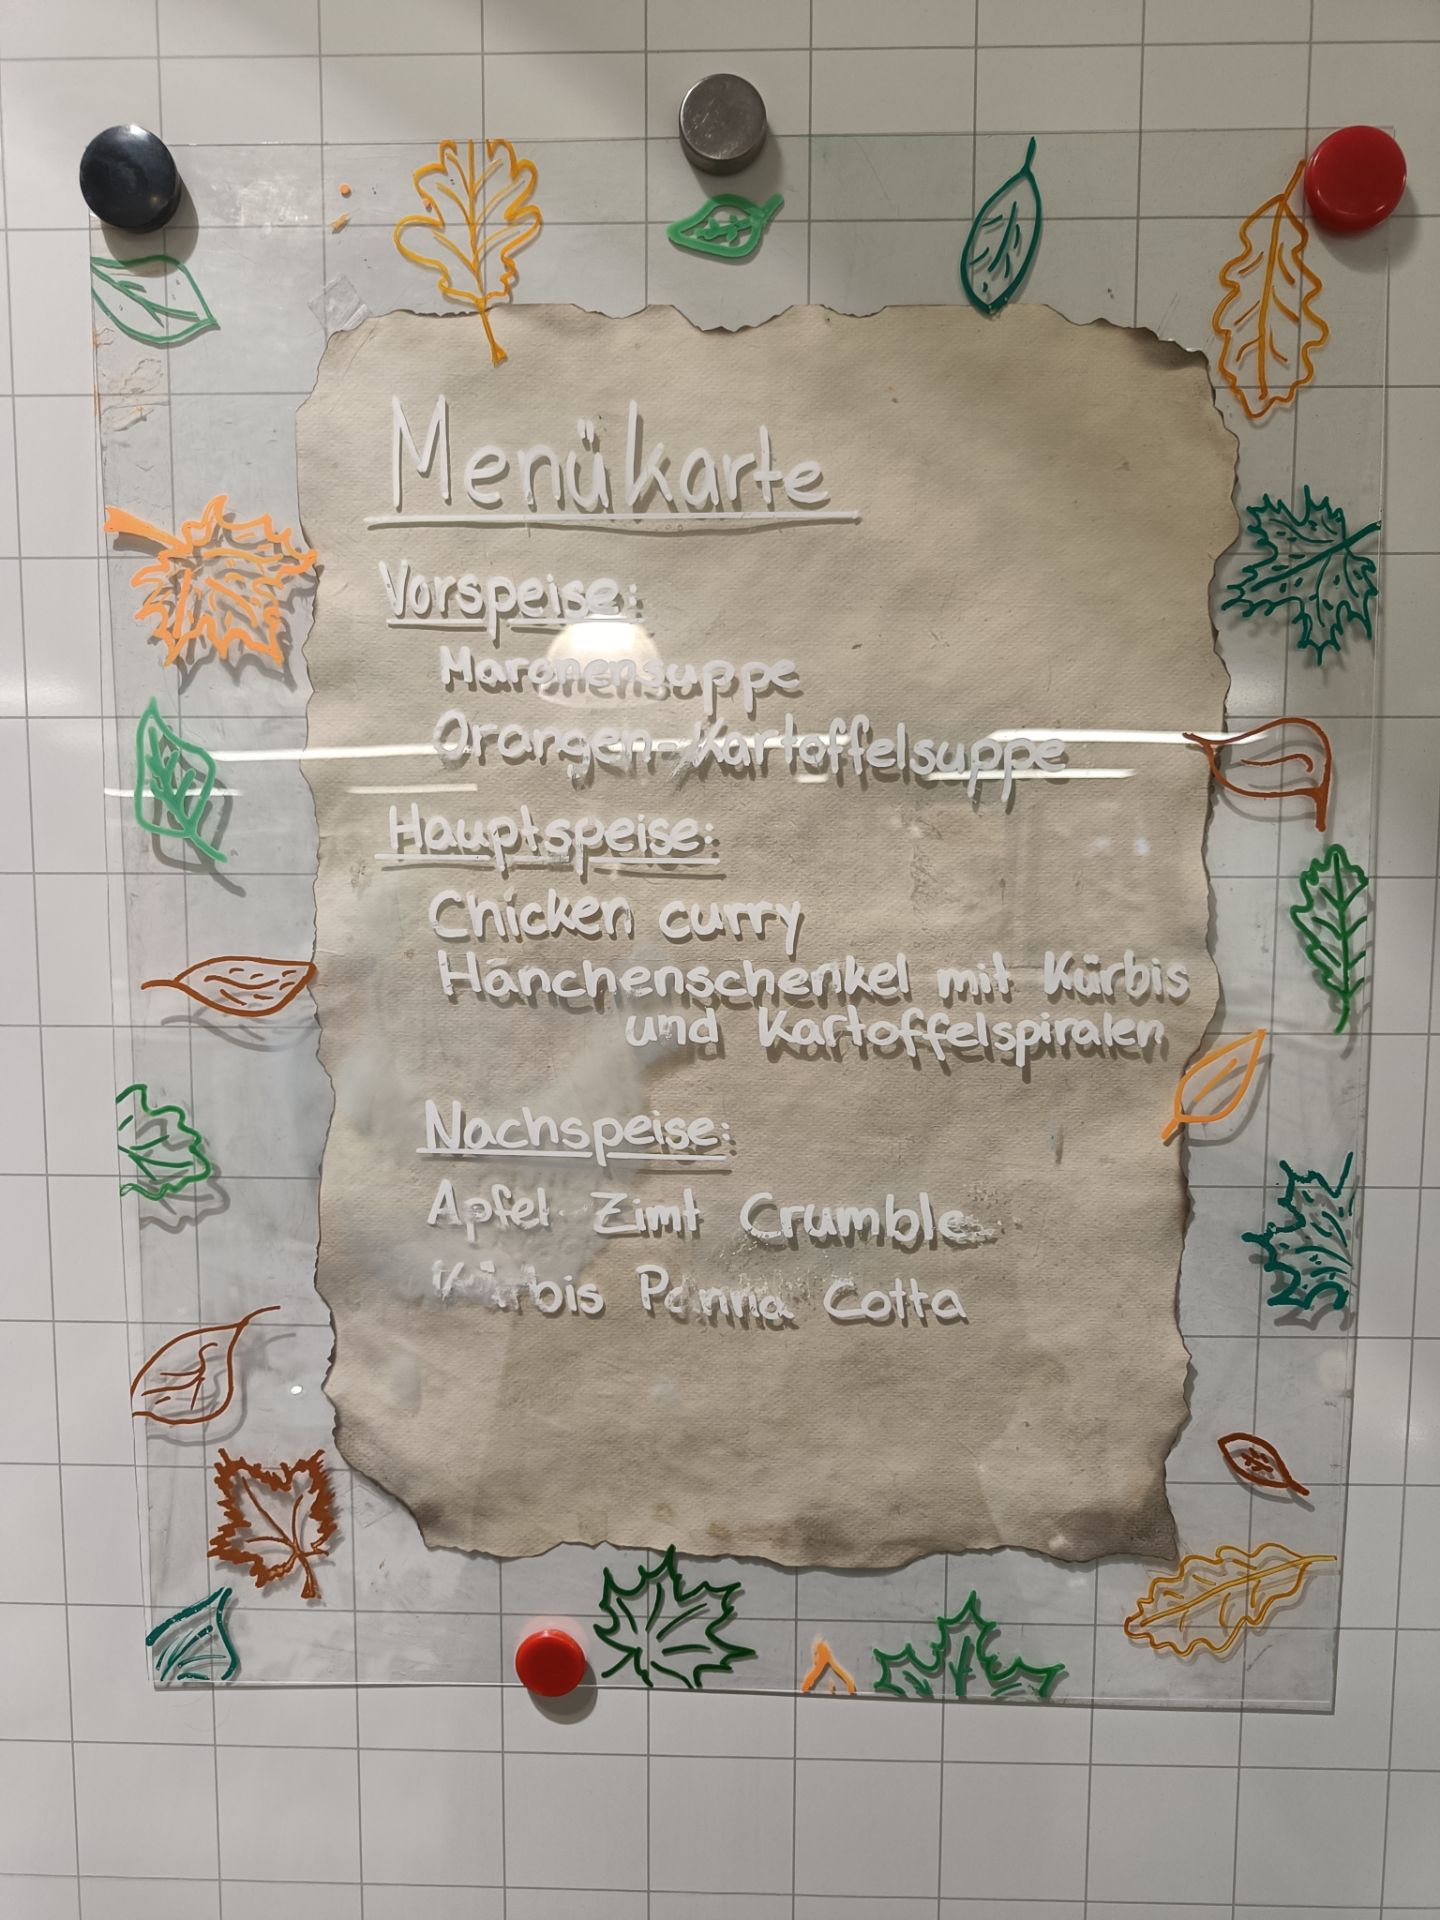 Menükarte
Vorspeise:
Maronensuppe
Orangen-Kartoffelsuppe
Hauptspeise:
Chicken curry
Hänchenschenkel mit Kürbis
und Kartoffelspiralen
Nachspeise:
Apfel Zimt Crumble
Kürbis Panna Cotta